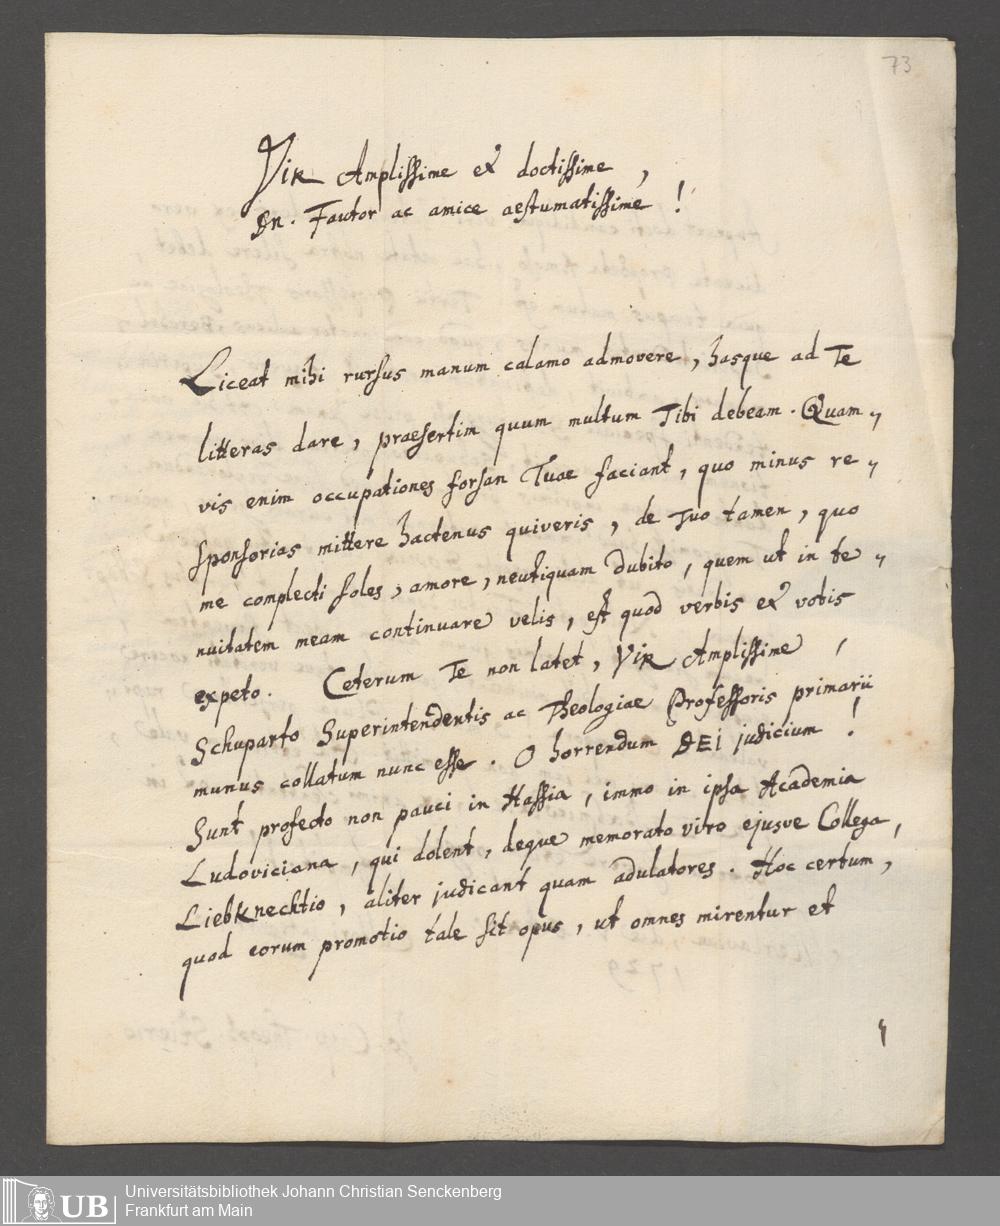 73
Vir Amplissime et doctissime,
Dn. Fautor ac amice aestumatissime!
Liceat mihi rursus manum calamo admovere, hasque ad Te
litteras dare, praesertim quum multum Tibi debeam. Quam„
vis enim occupationes forsan Tuae faciant, quo minus re„
sponsorias mittere hactenus quiveris, de Tuo tamen, quo
me complecti soles, amore, neutiquam dubito, quem ut in te„
nuitatem meam continuare velis, est quod verbis et votis
expeto. Ceterum Te non latet, Vir Amplissime,
Schuparto Superintendentis ac Theologiae Professoris primarii
munus collatum nunc esse. O horrendum DEI judicium!
Sunt profecto non pauci in Hassia, immo in ipsa Academia
Ludoviciana, qui dolent, deque memorato viro ejusve Collega,
Liebknechtio, aliter judicant quam adulatores. Hoc certum,
quod eorum promotio tale sit opus, ut omnes mirentur et
UB
Universitätsbibliothek Johann Christian Senckenberg
Frankfurt am Main